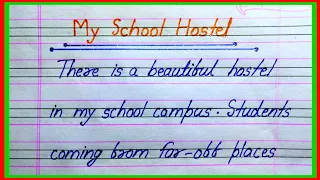 My School Hostel
There is a beautiful hostel
in my school campus. Students
coming from far-off places